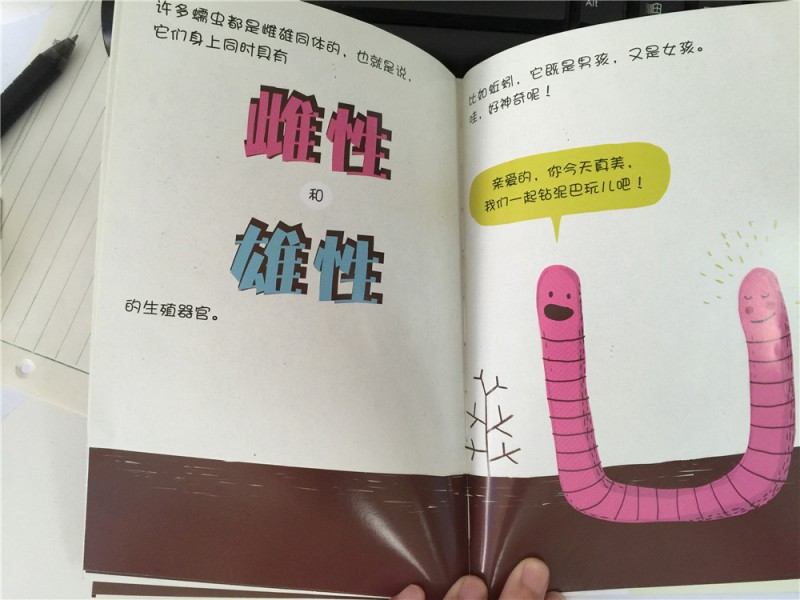 许多蠕虫都是雌雄同体的，也就是说，
它们身上同时具有
雌性
和
雄性
的生殖器官。
比如蚯蚓，它既是男孩，又是女孩。
哇，好神奇呢！
亲爱的，你今天真美，
我们一起钻泥巴玩儿吧！
Alt